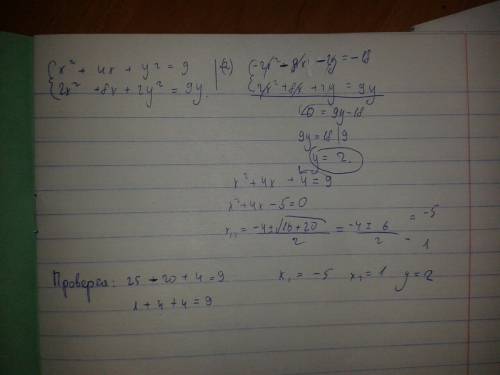 { x² + 4x + y² = 9 | (-2) { -2x² - 8x - 2y = -18
{ 2x² + 8x + 2y² = 9y. { 2x² + 8x + 2y = 9y
0 = 9y - 18
9y = 18 | 9
y = 2.
x² + 4x + 4 = 9
x² + 4x - 5 = 0
x₁,₂ = (-4 ± √(16 + 20)) / 2 = (-4 ± 6) / 2 = -5
1
Проверка: 25 - 20 + 4 = 9 x₁ = -5 x₂ = 1 y = 2
1 + 4 + 4 = 9